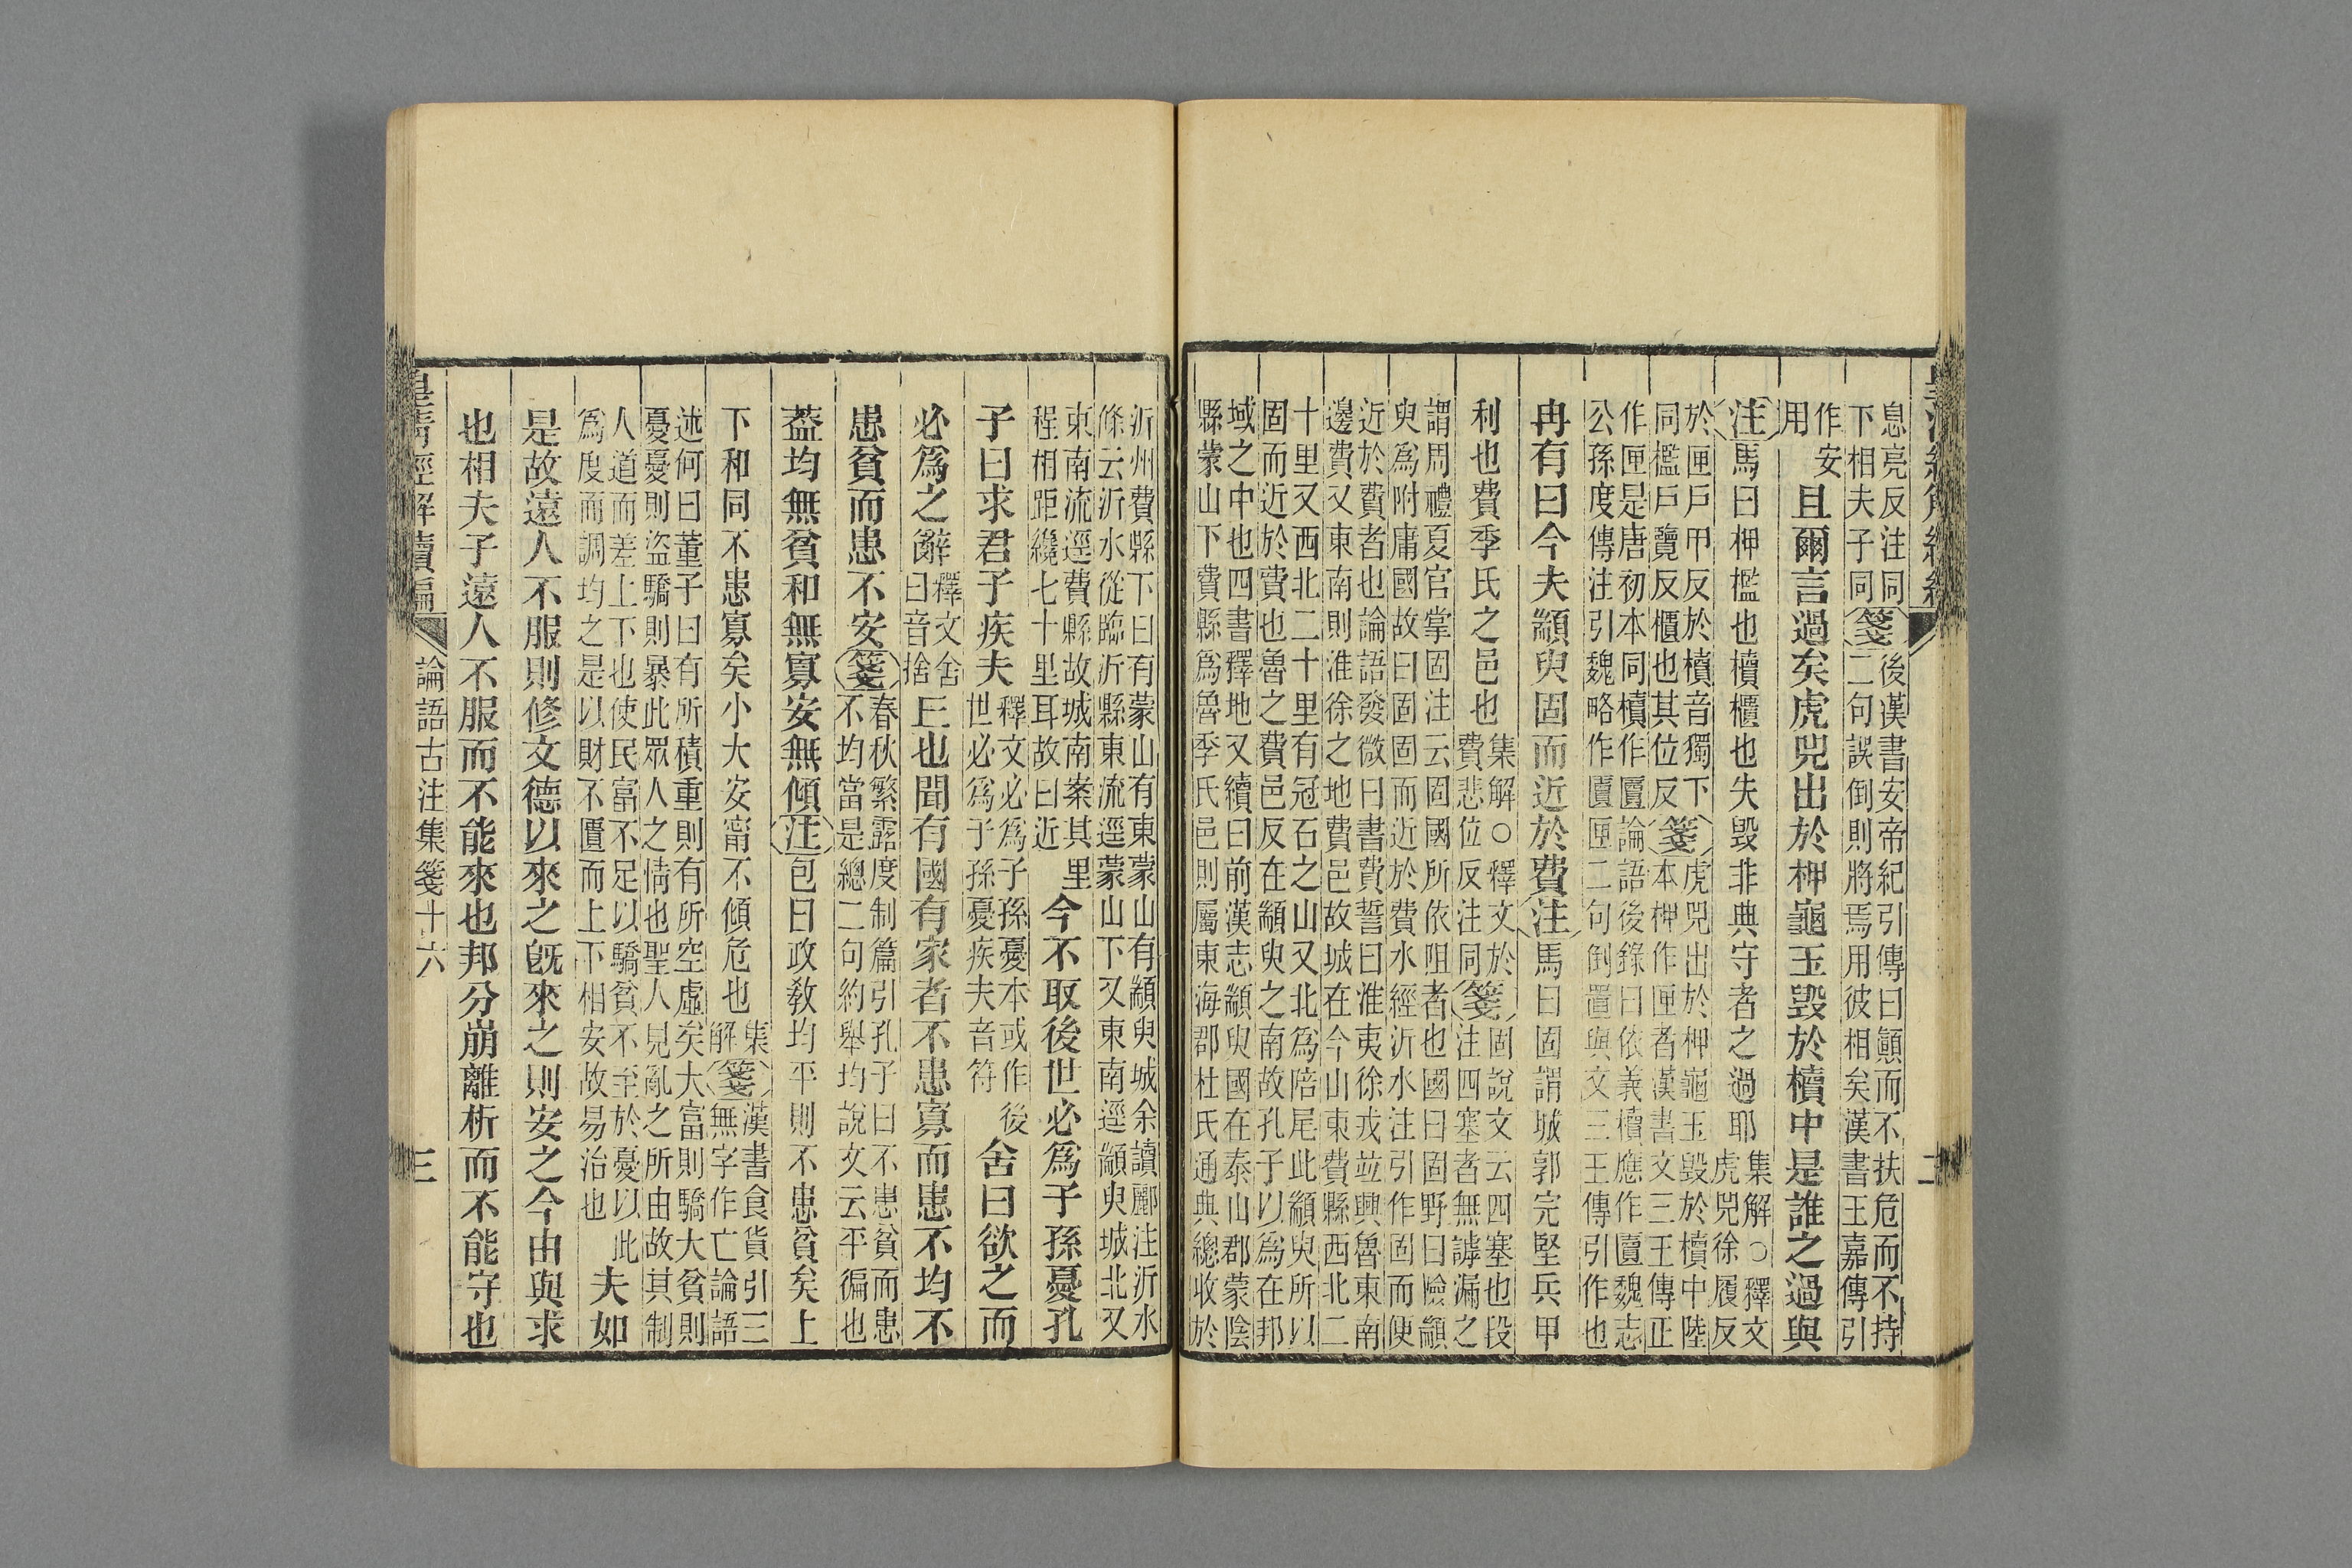 息亮反注同下相夫子同箋後漢書安帝紀引傳曰顚而不扶危而不持二句誤倒則將焉用彼相矣漢書王嘉傳引
作安用且爾言過矣虎兕出於柙龜玉毀於櫝中是誰之過與
注馬曰柙檻也櫝櫃也失毀非典守者之過耶集解○釋文虎兕徐履反
於匣戶甲反於櫝音獨下同檻戶覽反櫃也其位反箋虎兕出於柙龜玉毀於櫝中陸本柙作匣者漢書文三王傳正
作匣是唐初本同櫝作匵論語後錄曰依義櫝應作匵魏志
公孫度傳注引魏略作匵匣二句倒置與文三王傳引作也
冉有曰今夫顓臾固而近於費注馬曰固謂城郭完堅兵甲
利也費季氏之邑也集解○釋文於費悲位反注同箋固說文云四塞也段注四塞者無罅漏之
謂周禮夏官掌固注云固國所依阻者也國曰固野曰險顓
臾爲附庸國故曰固固而近於費水經沂水注引作固而便
近於費者也論語發微曰書費誓曰淮夷徐戎竝興魯東南
邊費又東南則淮徐之地費邑故城在今山東費縣西北二
十里又西北二十里有冠石之山又北爲陪尾此顓臾所以
固而近於費也魯之費邑反在顓臾之南故孔子以爲在邦
域之中也四書釋地又續曰前漢志顓臾國在泰山郡蒙陰
縣蒙山下費縣爲魯季氏邑則屬東海郡杜氏通典總收於
沂州費縣下曰有蒙山有東蒙山有顓臾城余讀酈注沂水
條云沂水從臨沂縣東流逕蒙山下又東南逕顓臾城北又
東南流逕費縣故城南案其里程相距纔七十里耳故曰近今不取後世必爲子孫憂孔
子曰求君子疾夫釋文必爲子孫憂本或作後世必爲子孫憂疾夫音符舍曰欲之而
必爲之辭釋文舍曰音捨丘也聞有國有家者不患寡而患不均不
患貧而患不安箋春秋繁露度制篇引孔子曰不患貧而患不均當是總二句約舉均說文云平徧也
蓋均無貧和無寡安無傾注包曰政敎均平則不患貧矣上
下和同不患寡矣小大安甯不傾危也集解箋漢書食貨引三無字作亡論語
述何曰董子曰有所積重則有所空虛矣大富則驕大貧則
憂憂則盜驕則暴此眾人之情也聖人見亂之所由故其制
人道而差上下也使民富不足以驕貧不至於憂以此爲度而調均之是以財不匱而上下相安故易治也夫如
是故遠人不服則修文德以來之旣來之則安之今由與求
也相夫子遠人不服而不能來也邦分崩離析而不能守也
皇清經解續編 論語古注集箋十六 三